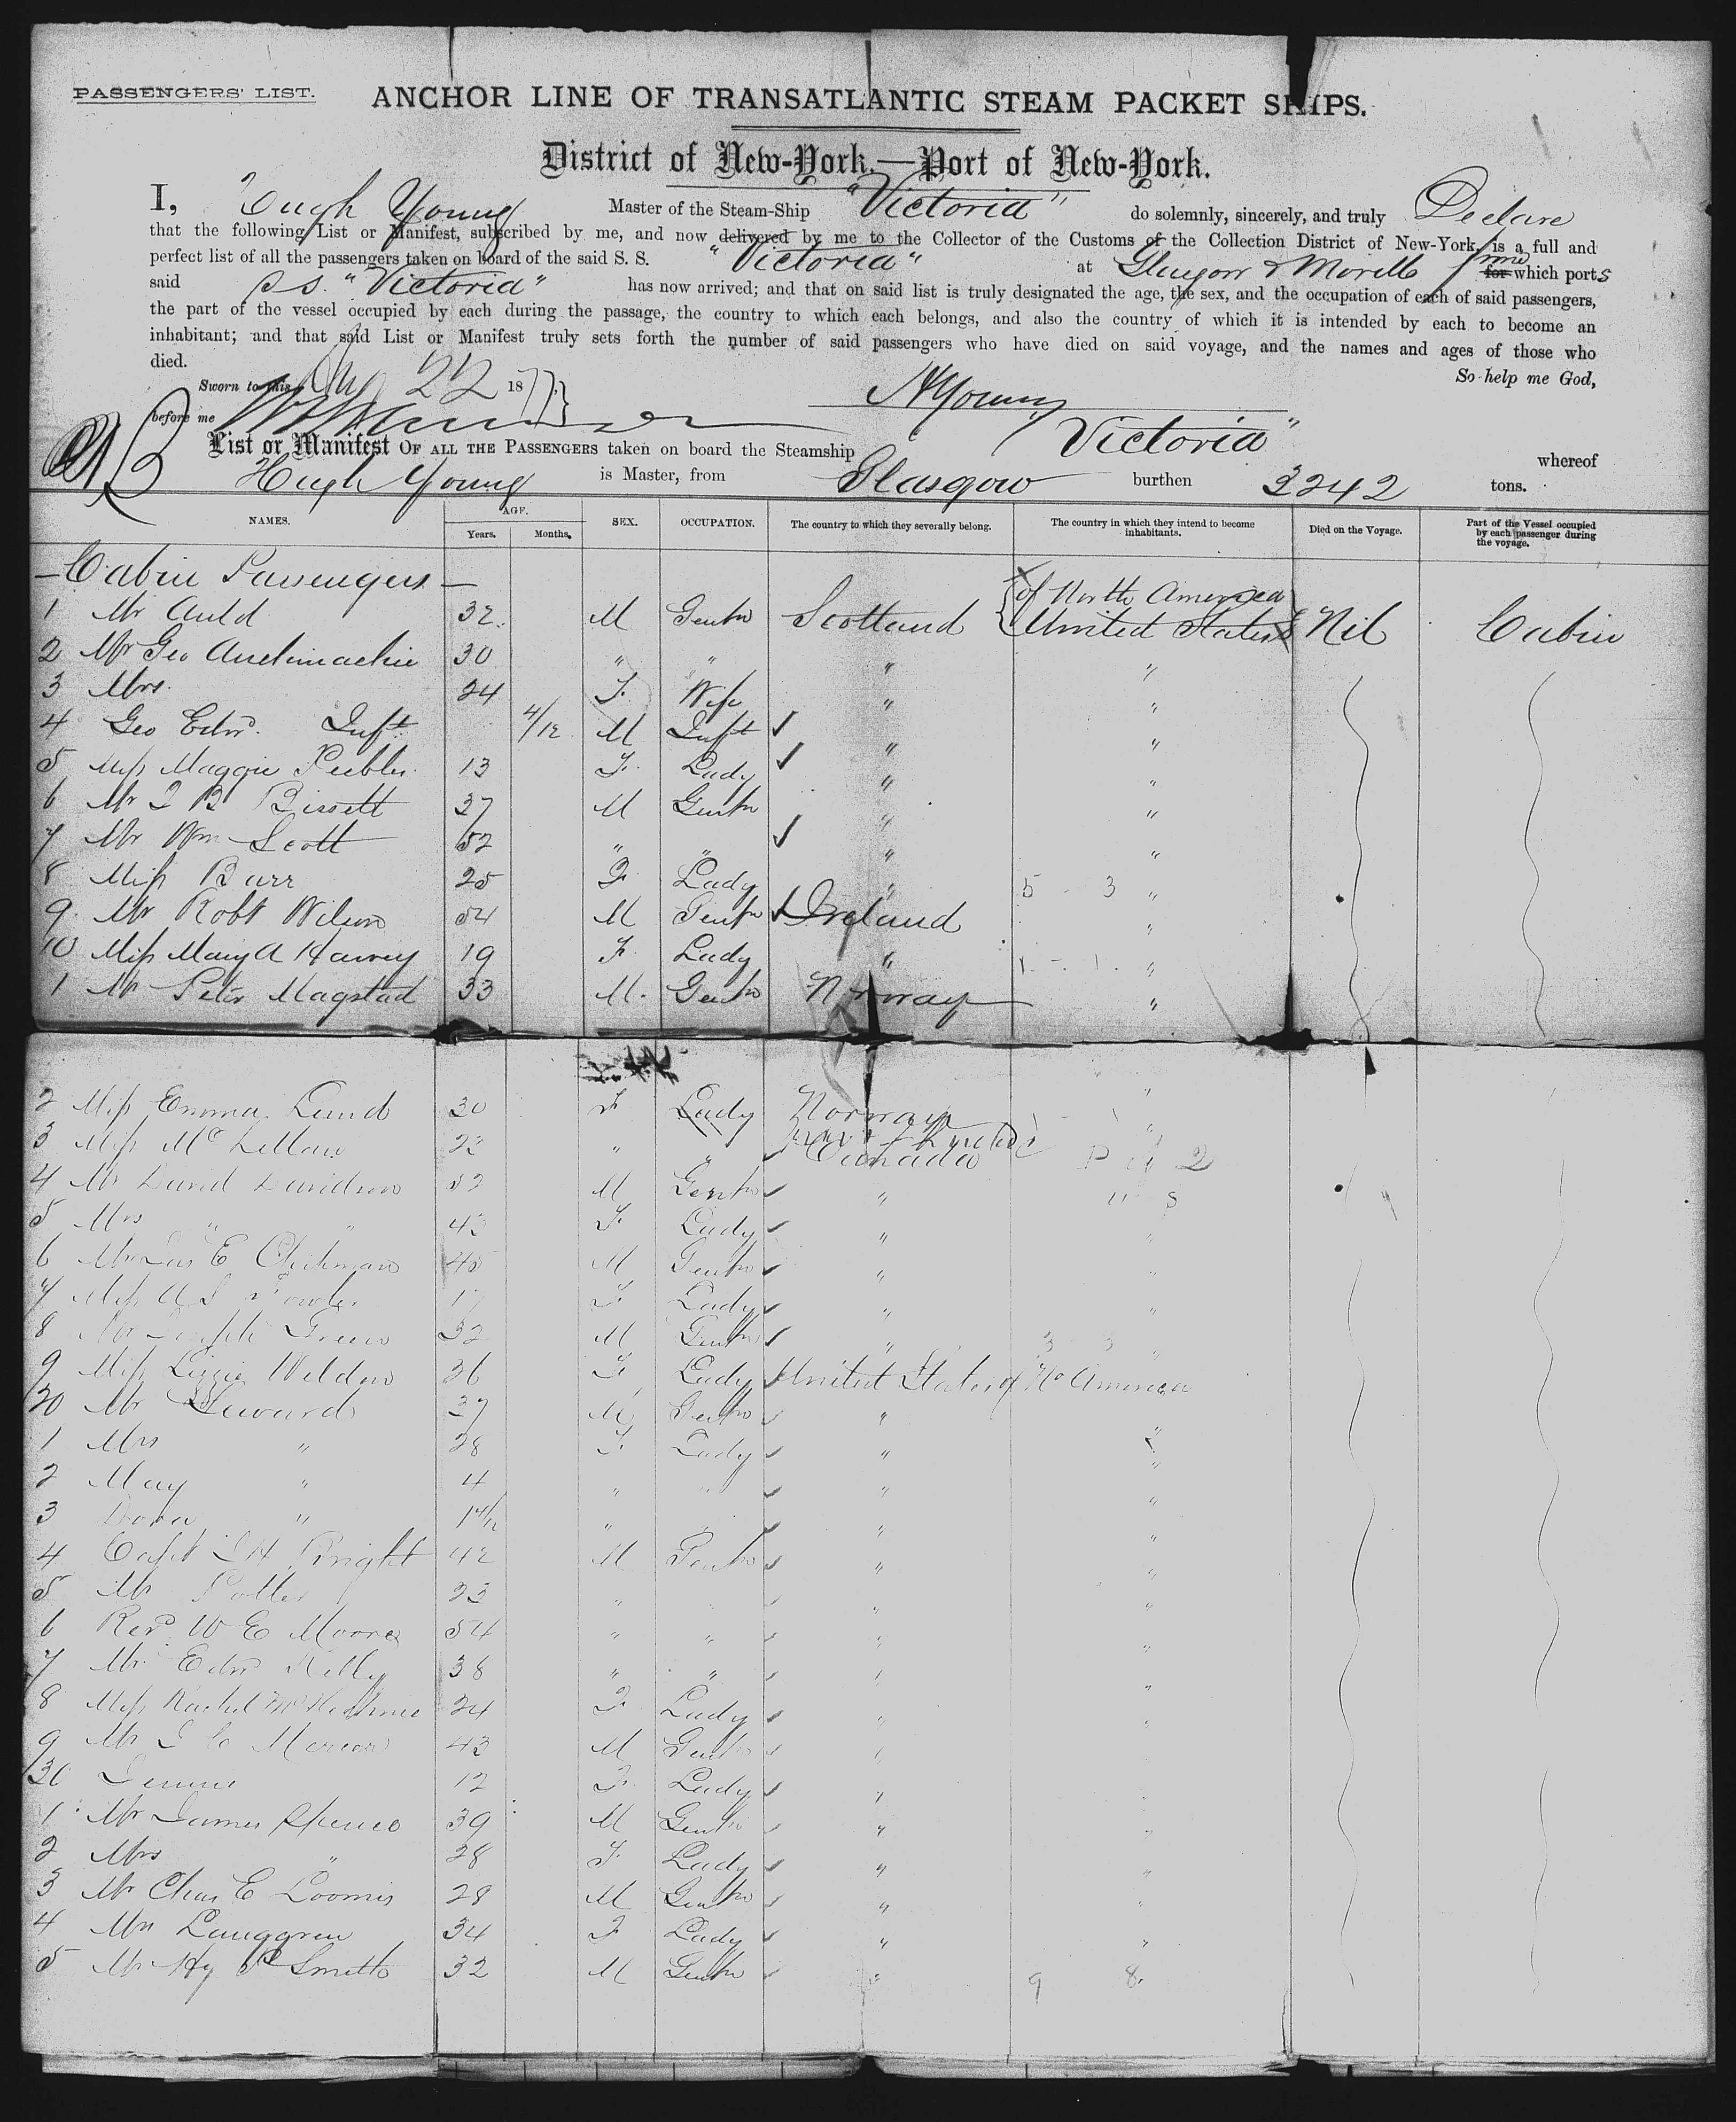 PASSENGERS' LIST.
ANCHOR LINE OF TRANSATLANTIC STEAM PACKET SHIPS.
District of New-York.—Port of New-York.
I, Hugh Young Master of the Steam-Ship "Victoria" do solemnly, sincerely, and truly Declare
that the following List or Manifest, subscribed by me, and now delivered by me to the Collector of the Customs of the Collection District of New-York, is a full and
perfect list of all the passengers taken on board of the said S. S. "Victoria" at Glasgow & Moville from which ports
said S.S. "Victoria" has now arrived; and that on said list is truly designated the age, the sex, and the occupation of each of said passengers,
the part of the vessel occupied by each during the passage, the country to which each belongs, and also the country of which it is intended by each to become an
inhabitant; and that said List or Manifest truly sets forth the number of said passengers who have died on said voyage, and the names and ages of those who
died.
So help me God,
Sworn to this Aug 22 1877
before me
H Young
List or Manifest OF ALL THE PASSENGERS taken on board the Steamship "Victoria" whereof
Hugh Young is Master, from Glasgow burthen 3242 tons.
NAMES. AGE. Years. Months. SEX. OCCUPATION. The country to which they severally belong. The country in which they intend to become inhabitants. Died on the Voyage. Part of the Vessel occupied by each passenger during the voyage.
Cabin Passengers
of North America
1 Mr Auld 32 M Gentn Scotland United States Nil Cabin
2 Mr Geo 30 " " " "
3 Mrs. 24 F. Wife " "
4 Geo Edwd. Inft. 4/12 M Inft " "
5 Miss Maggie Peebles 13 F. Lady " "
6 Mr J B Bissett 37 M Gentn " "
7 Mr Wm Scott 52 " " " "
8 Miss Barr 25 F. Lady " 5 - 3 "
9. Mr Robt Wilson 54 M Gentn Ireland "
10 Miss Mary A Harvey 19 F. Lady " 1 - 1 "
1 Mr Peter Magstad 33 M. Gentn Norway "
2 Miss Emma Lund 30 F Lady Norway - 1 "
3 Miss McLellan 22 " " Canada 2
4 Mr David Davidson 52 M Gentn "
5 Mrs " " 43 F. Lady " "
6 Mr Jas E 45 M Gentn " "
7 Miss A S Fowler 17 F. Lady " "
8 Mr Joseph Green 32 M Gentn " 3 3 "
9 Miss Lizzie Weldon 36 F. Lady United States of No America
20 Mr Seward 37 M Gentn "
1 Mrs " 28 F. Lady " "
2 May " 4 " " " "
3 Dora " " " " "
4 Capt J H Bright 42 M Gentn " "
5 Mr Potter 23 " " " "
6 Revd W E Moore 54 " " " "
7 Mr Edwd Kelly 38 " " " "
8 Miss Rachel 24 F. Lady " "
9 Mr J C Mercer 43 M Gentn "
30 Jennie 12 F. Lady "
1 Mr James Spence 39 M Gentn " "
2 Mrs " 28 F Lady " "
3 Mr Chas E Loomis 28 M Gentn " "
4 Mrs Langgren 34 F Lady " "
5 Mr Hy P Smith 32 M Gentn " 9 8.